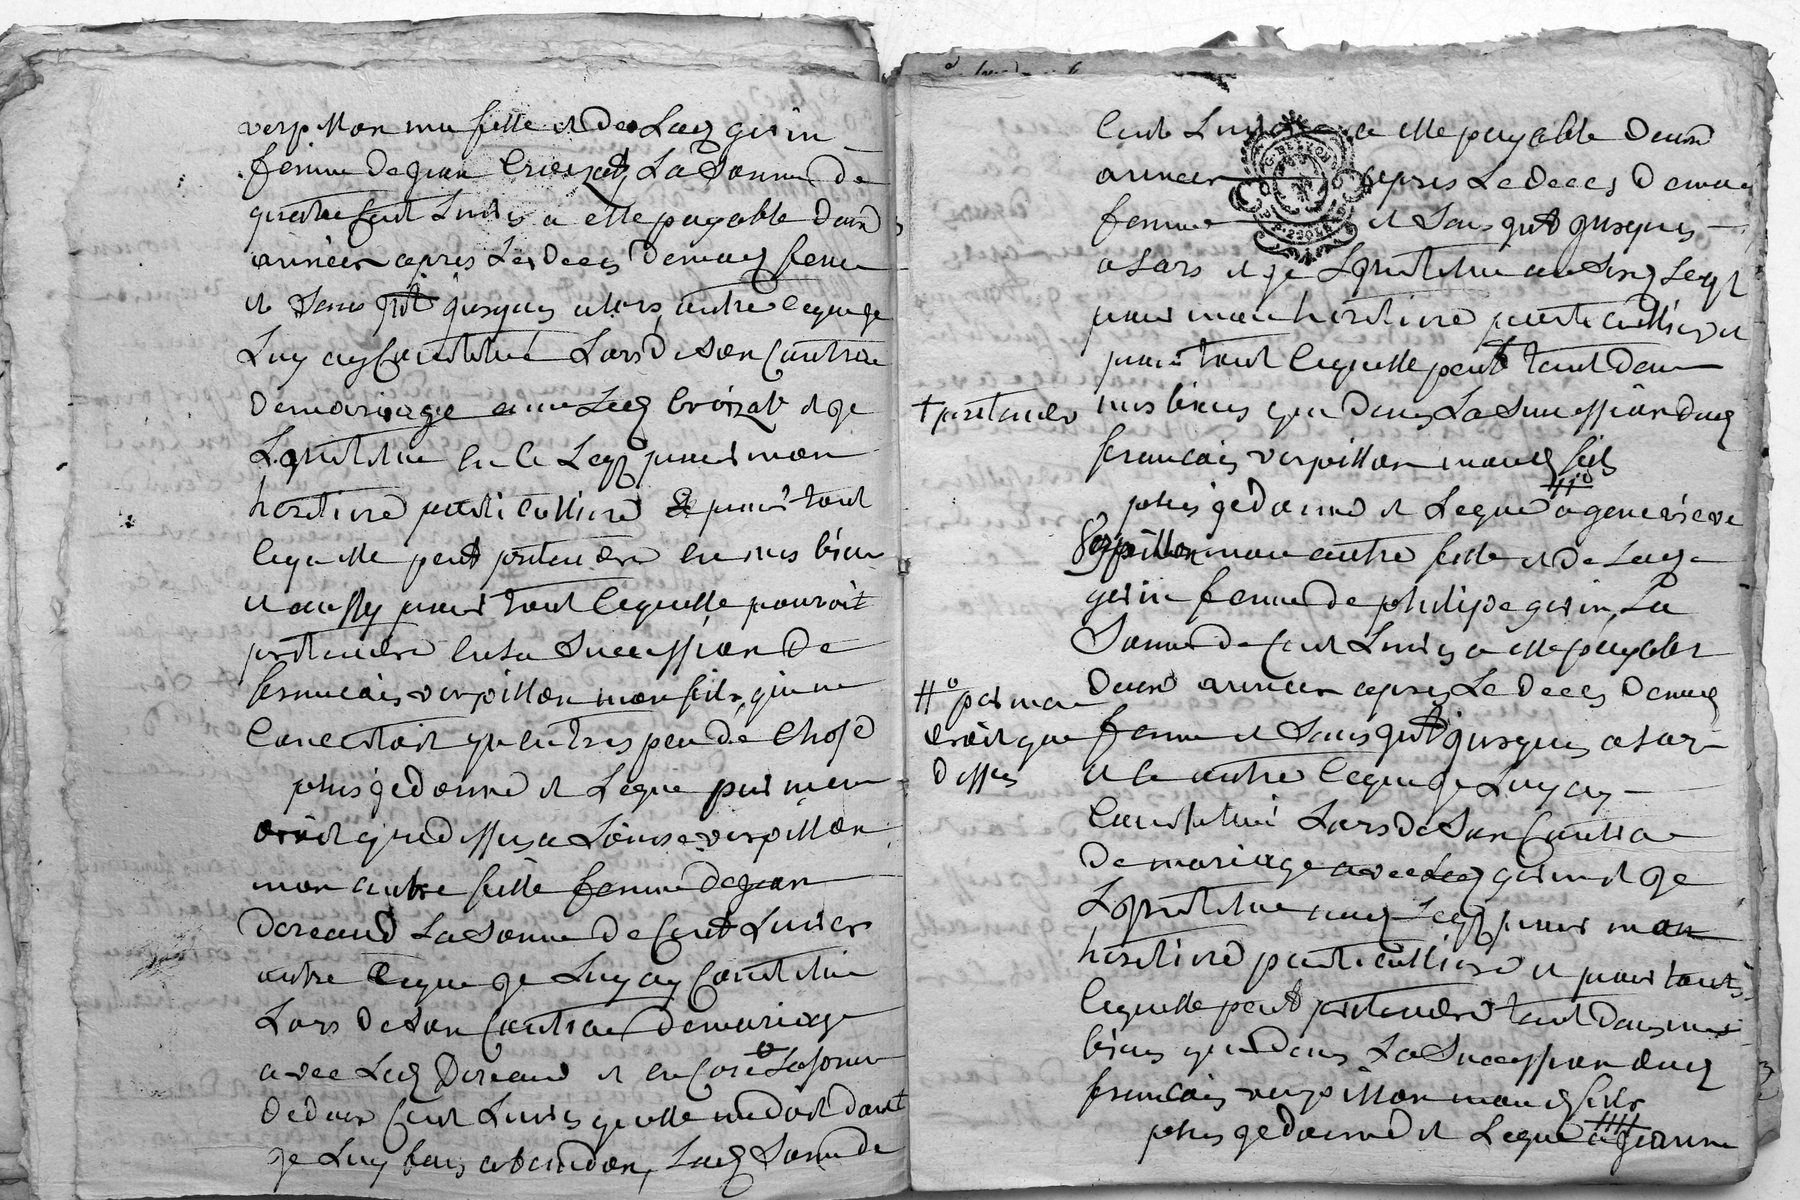 verpillon ma fille et de Lad gerin
femme de jean Croizat La Somme de
quatre cent Livres a elle payable deux
années apres Le deces de mad femme
et Sans jusques alors, outre ceque je
Luy ay Constitué Lors de Son Contrac
de mariage avec Led Croizat et je
L'institue en ce Legs pour mon
heritiere particulliere et pour tout
ce quelle peut pretendre en mes biens
et aussy pour tout ce quelle pouvoit
pretendre en la Succession de
francois verpillon mon fils, qui ne
Concistoit qu'en tres peu de Chose
plus je donne et Legue par meme
droit que dessus a Loüise verpillon
mon autre fille femme de jean
Doreaud La Somme de Cent Livres
outre ceque je Luy ay Constitué
Lors de Son Contrac de mariage
avec Led Doreaud et encore La Somme
de deux Cent Livres quelle me doit dont
je Luy fais abandon, Lad Somme de
Cent Livres a elle payable deux
années apres Le deces de mad
femme et Sans jusques
a Lors et je L'institue aud Legs
pour mon heritiere particulliere et
pour tout ce quelle peut tant dans
+ pretendre
mes biens que dans La Succession dud
francois verpillon mond fils
plus je donne et Legue a genevieve
verpillon mon autre fille et de Lad
gerin femme de philipe gerin, La
Somme de Cent Livres a elle payable
deux années apres Le deces de mad
par meme
droit que
dessus
femme et Sans jusques a Lors
et ce outre ceque je Luy ay
Constitué Lors de Son Contrac
de mariage avec Led gerin et je
L'institue aud Legs pour mon
heritiere particulliere et pour tout
ce quelle peut pretendre tant dans mes
biens que dans La Succession dud
francois verpillon mond fils
plus je donne et Legue a jeanne